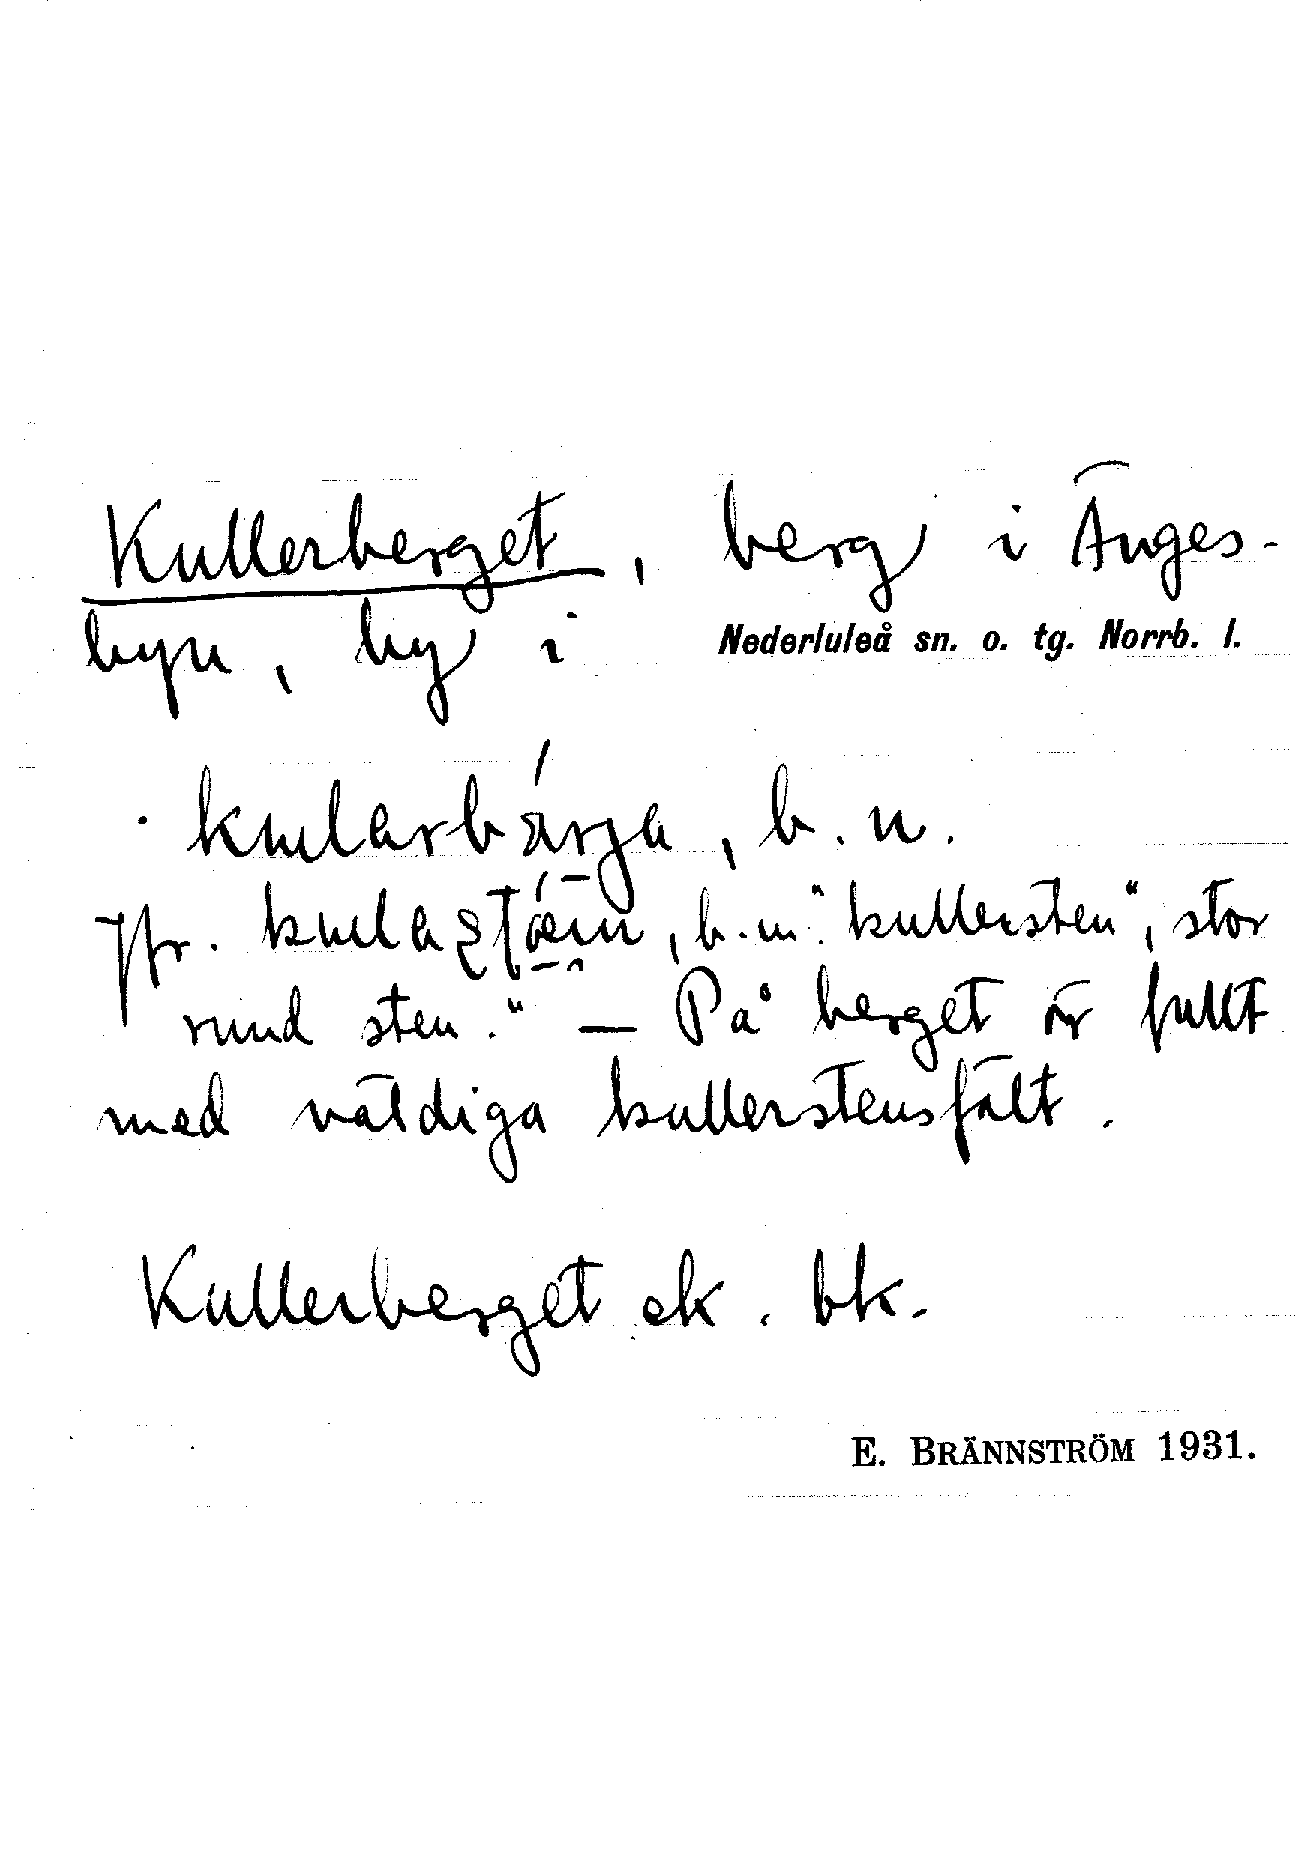 Kullerberget, berg i Änges-
byn, by i Nederluleå sn. o. tg. Norrb. l.
b. n.
Jfr. b. m. "kullersten", stor
rund sten." — På berget är fullt
med väldiga kullerstensfält.
Kullerberget ek. bk.
E. BRÄNNSTRÖM 1931.